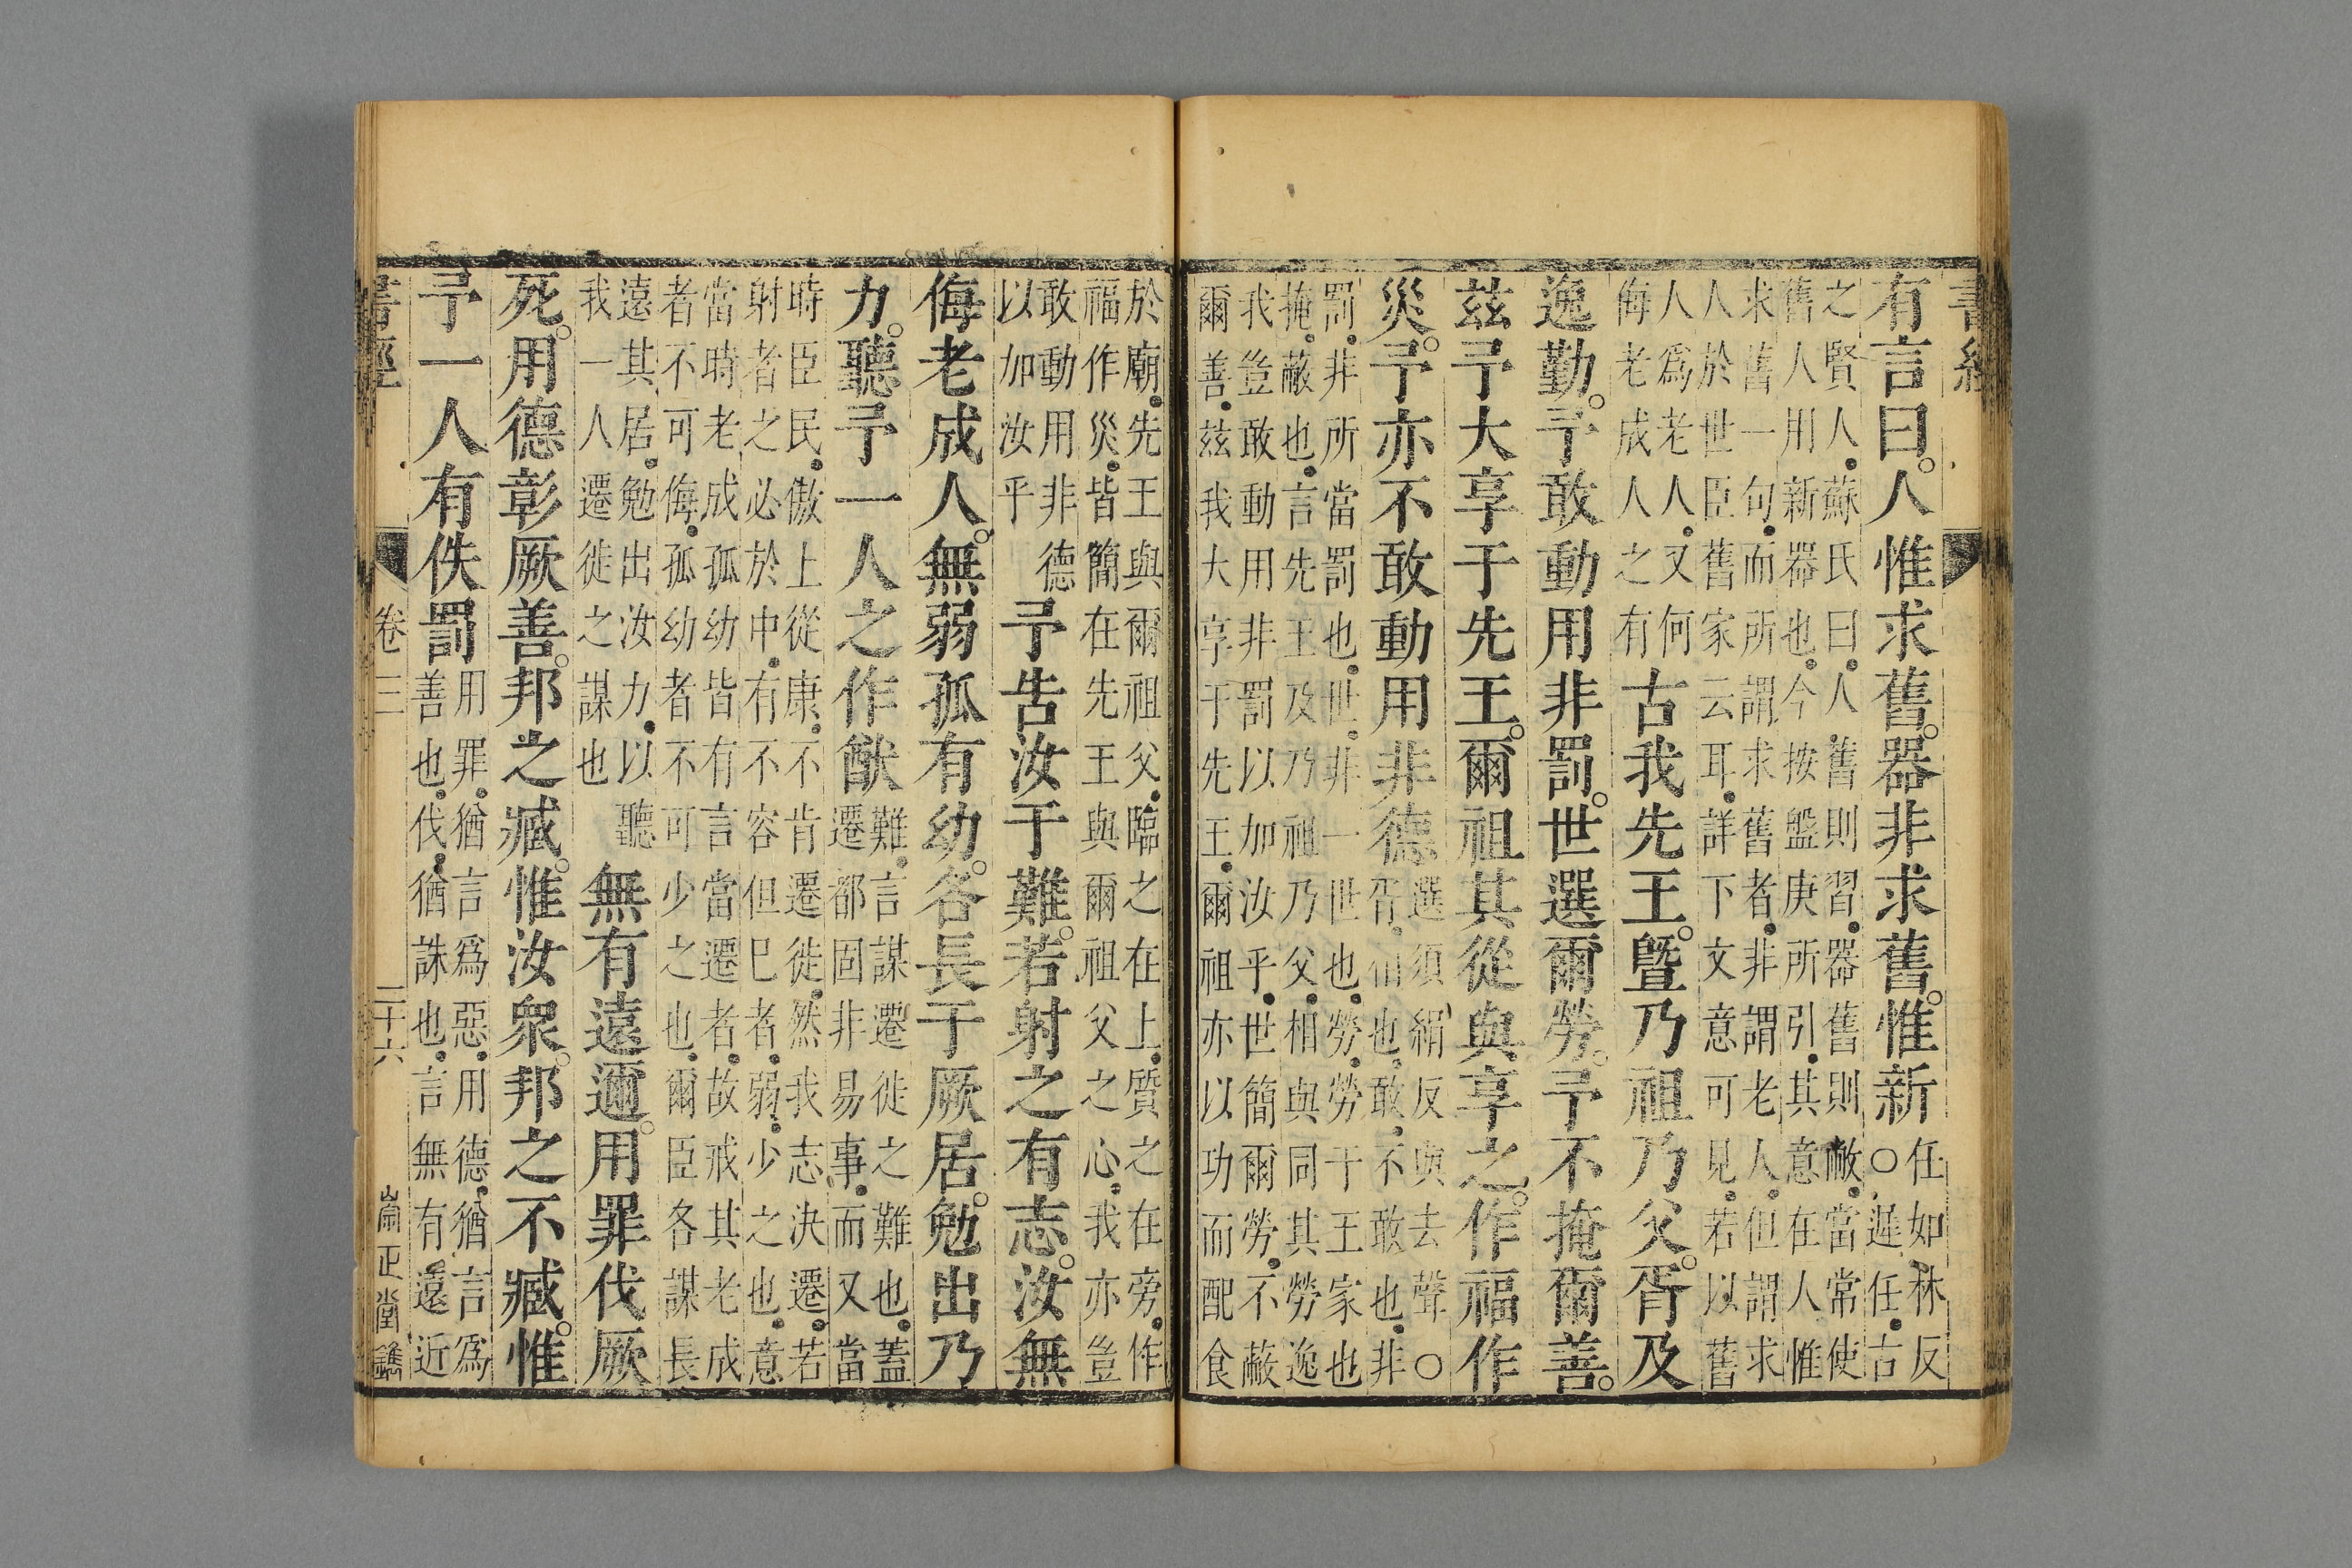 書經
有言曰。人惟求舊。器非求舊。惟新
任如林反
○遲任．古
之賢人．蘇氏曰．人舊則習．器舊則敝．當常使
舊人用新器也．今按盤庚所引．其意在人惟
求舊一句．而所謂求舊者．非謂老人．但謂求
人於世臣舊家云耳．詳下文意可見．若以舊
人爲老人．又何
侮老成人之有
古我先王。暨乃祖乃父。胥及
逸勤。予敢動用非罰。世選爾勞。予不掩爾善。
茲予大享于先王。爾祖其從與享之。作福作
災。予亦不敢動用非德
選須絹反與去聲○
胥．相也．敢．不敢也．非
罰．非所當罰也．世．非一世也．勞．勞于王家也
掩．蔽也．言先王及乃祖乃父．相與同其勞逸
我豈敢動用非罰以加汝乎．世簡爾勞．不蔽
爾善．茲我大享于先王．爾祖亦以功而配食
於廟．先王與爾祖父．臨之在上．質之在旁．作
福作災．皆簡在先王與爾祖父之心．我亦豈
敢動用非德
以加汝乎
予告汝于難。若射之有志。汝無
侮老成人。無弱孤有幼。各長于厥居。勉出乃
力。聽予一人之作猷
難．言謀遷徙之難也．蓋
遷都固非易事．而又當
時臣民．傲上從康．不肯遷徙．然我志決遷．若
射者之必於中．有不容但巳者．弱．少之也．意
當時老成孤幼皆有言當遷者．故戒其老成
者不可侮．孤幼者不可少之也．爾臣各謀長
遠其居．勉出汝力．以聽
我一人遷徙之謀也
無有遠邇。用罪伐厥
死。用德彰厥善。邦之臧。惟汝衆。邦之不臧。惟
予一人有佚罰
用罪．猶言爲惡．用德．猶言爲
善也．伐．猶誅也．言無有遠近
書經 卷三 二十六 崇正堂鐫